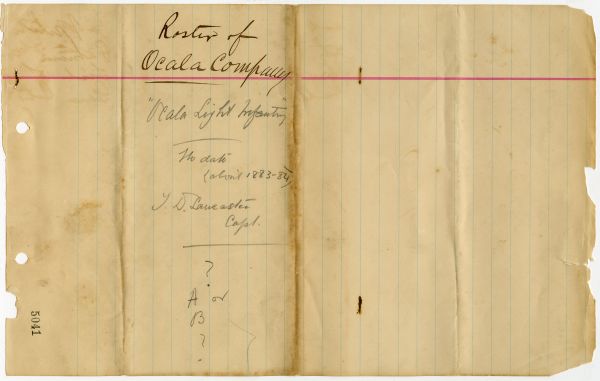 Roster of
Ocala Company
"Ocala Light Infantry"
No date
(about 1883-84)
T. D. Lancaster
Capt.
?
A or
B
?
5041